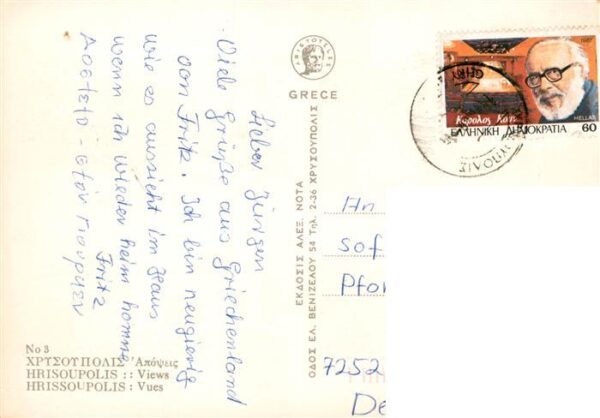 Lieber Jürgen
Viele Grüße aus Griechenland
von Fritz. Ich bin neugierig
wie es aussieht im Haus
wenn ich wieder heim komme
Fritz
ARISTOTELES
GREECE
ΕΚΔΟΣΙΣ ΑΛΕΞ. ΝΟΤΑ
ΟΔΟΣ ΕΛ. ΒΕΝΙΖΕΛΟΥ 54 Τηλ. 2-36 ΧΡΥΣΟΥΠΟΛΙΣ
Νο 3
ΧΡΥΣΟΥΠΟΛΙΣ Ἀπόψεις
HRISOUPOLIS :: Views
HRISSOUPOLIS : Vues
1987
Κάρολος Κουν
HELLAS
ΕΛΛΗΝΙΚΗ ΔΗΜΟΚΡΑΤΙΑ 60
An
sof
Pfor
7252
De